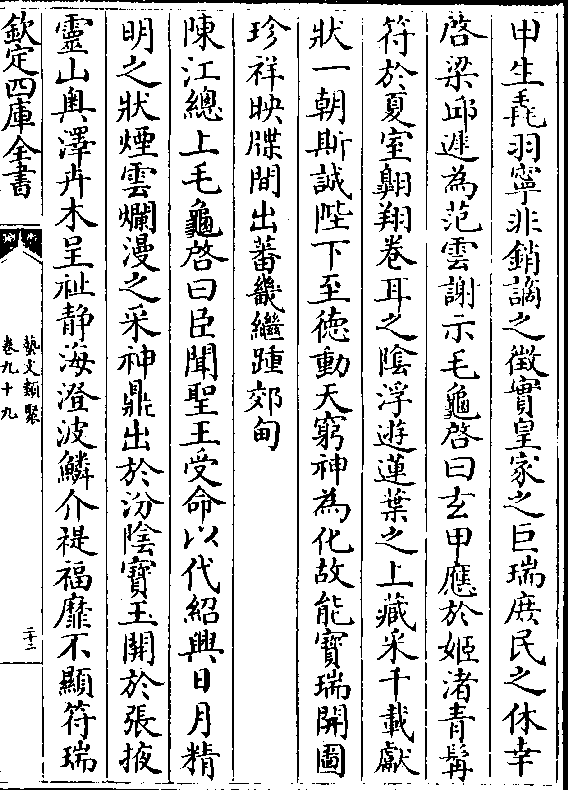 甲生毳羽寧非銷謫之徵實皇家之巨瑞庶民之休幸
啓梁邱遲為范雲謝示毛龜啓曰玄甲應於姬渚青髯
符於夏室翺翔卷耳之陰浮遊蓮葉之上藏采千載獻
狀一朝斯誠陛下至徳動天窮神為化故能寶瑞開圖
珍祥映牒間出蕃畿繼踵郊甸
陳江總上毛龜啓曰臣聞聖王受命以代紹興日月精
明之狀煙雲爛漫之采神鼎出於汾隂寶玉開於張掖
靈山奥澤卉木呈祉静海澄波鱗介禔福靡不顯符瑞
欽定四庫全書
藝文類聚
卷九十九
二十三